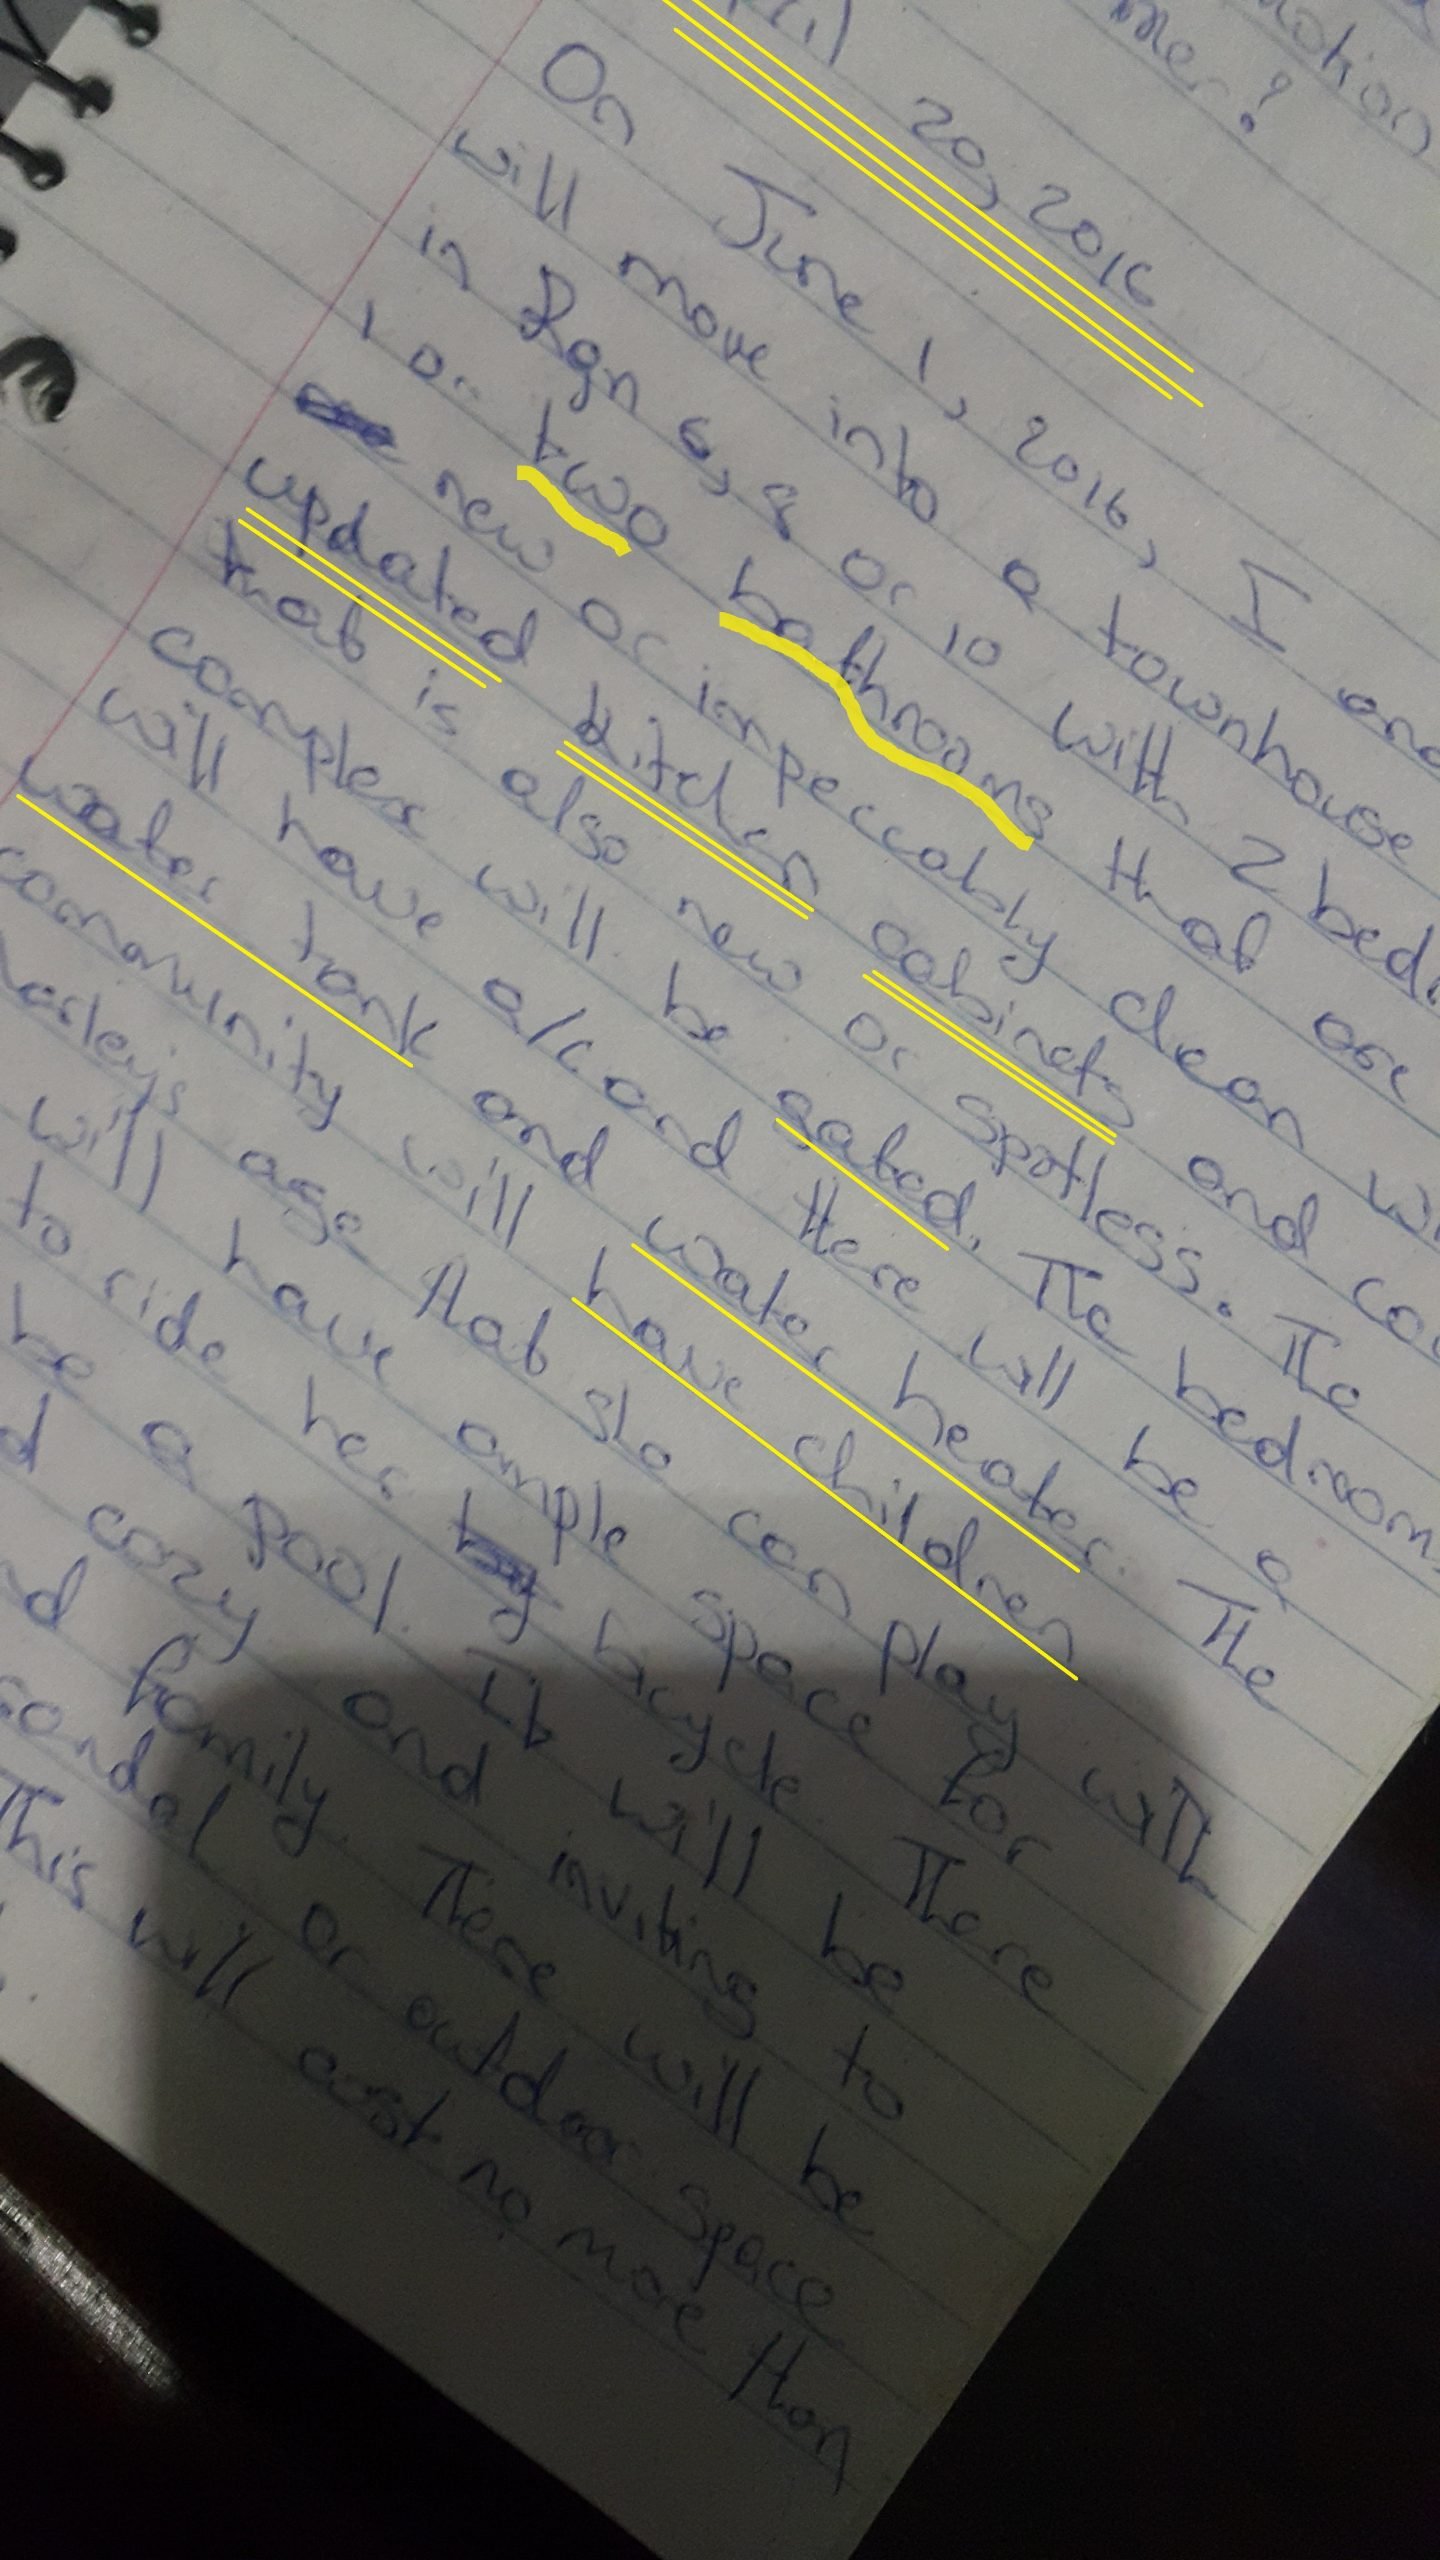 mer?
20, 2016
On June 1, 2016, I and
will move into a townhouse
in Rgn 6, 8 or 10 with 2 bed.
1 or two bathrooms that are
new or impeccably clean
updated kitchen cabinets and
that is also new or spotless. The
complex will be gated. The bedrooms
will have a/c and there will be a
water tank and water heater. The
community will have children
age that she can play with
will have ample space for
to ride her bicycle. There
be a pool. It will be
cozy and inviting to
family. There will be
or outdoor space
This will cost no more than